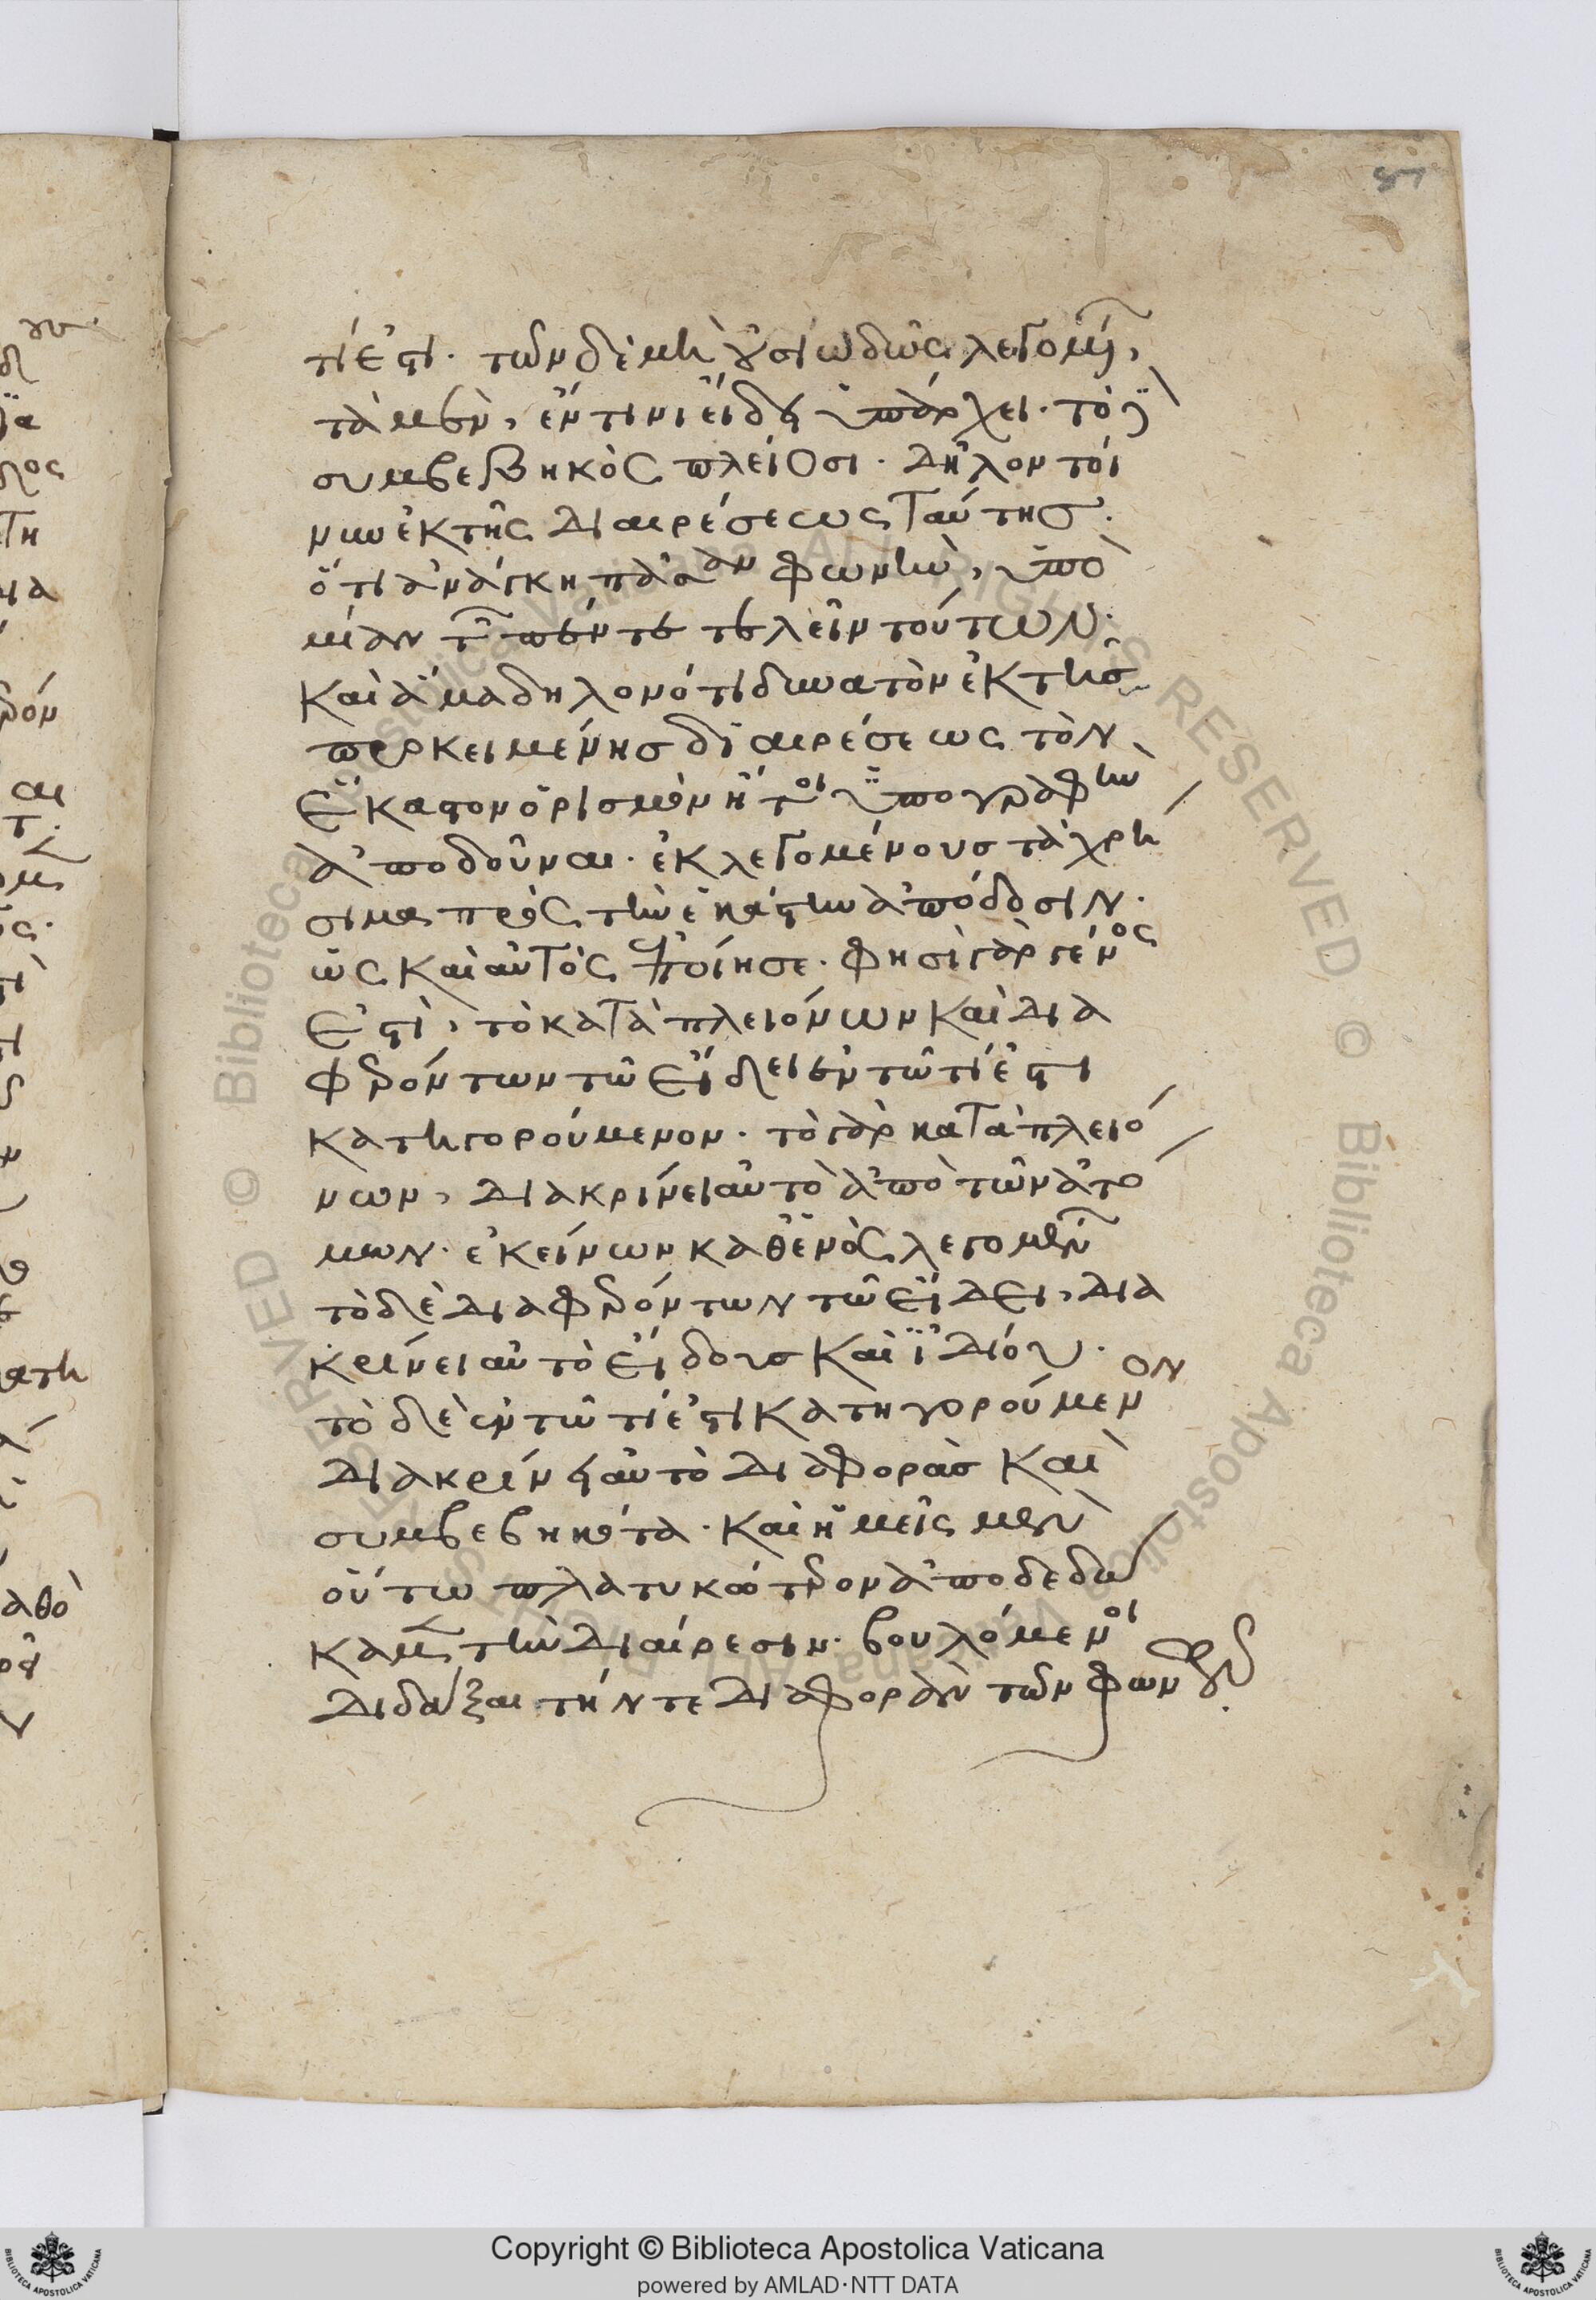 87
τί ἐστι. τῶν δὲ μὴ οὐσιωδῶς λεγομ(έν)(ων),
τὰ μὲν, ἑν τινὶ εἴδει ὑπάρχει. τὸ δὲ
συμβεβηκὸς πλείοσι. Δῆλον τοί
νυν ἐκ τῆς διαιρέσεως ταύτης.
ὅτι ἀνάγκη πᾶσαν φωνὴν, ὑπὸ
μίαν τῶν πέντε τελεῖν τούτων.
καὶ ἅμα δηλονότι δυνατὸν ἐκ τῆς
προκειμένης διαιρέσεως τὸν
ἑκάστου ὁρισμὸν ἤτοι ὑπογραφὴν
ἀποδοῦναι. ἐκλεγομένους τὰ χρή
σιμα πρὸς τὴν ἑκάστου ἀπόδοσιν.
ὡς καὶ αὐτὸς ἐποίησε. φησὶ γὰρ γένος
ἐστὶ, τὸ κατὰ πλειόνων καὶ δια
φερόντων τῶ εἴδει ἐν τῶ τί ἐστι
κατηγορούμενον. τὸ γὰρ κατὰ πλειό
νων, διακρίνει αὐτὸ ἀπὸ τῶν ἀτό
μων. ἐκείνων καθενὸς λεγομένων
τὸ δὲ διαφερόντων τῶ εἴδει, δια
κρίνει αὐτὸ εἴδους καὶ ἰδίου.
τὸ δὲ ἐν τῶ τί ἐστι κατηγορούμενον
διακρίνει αὐτὸ διαφορὰς καὶ
συμβεβηκότα. καὶ ἡμεῖς μὲν
οὕτω πλατυκώτερον ἀποδεδώ
καμεν τὴν διαίρεσιν. βουλόμενοι
διδάξαι τήν τε διαφορὰν τῶν φωνῶν
Copyright © Biblioteca Apostolica Vaticana
powered by AMLAD·NTT DATA